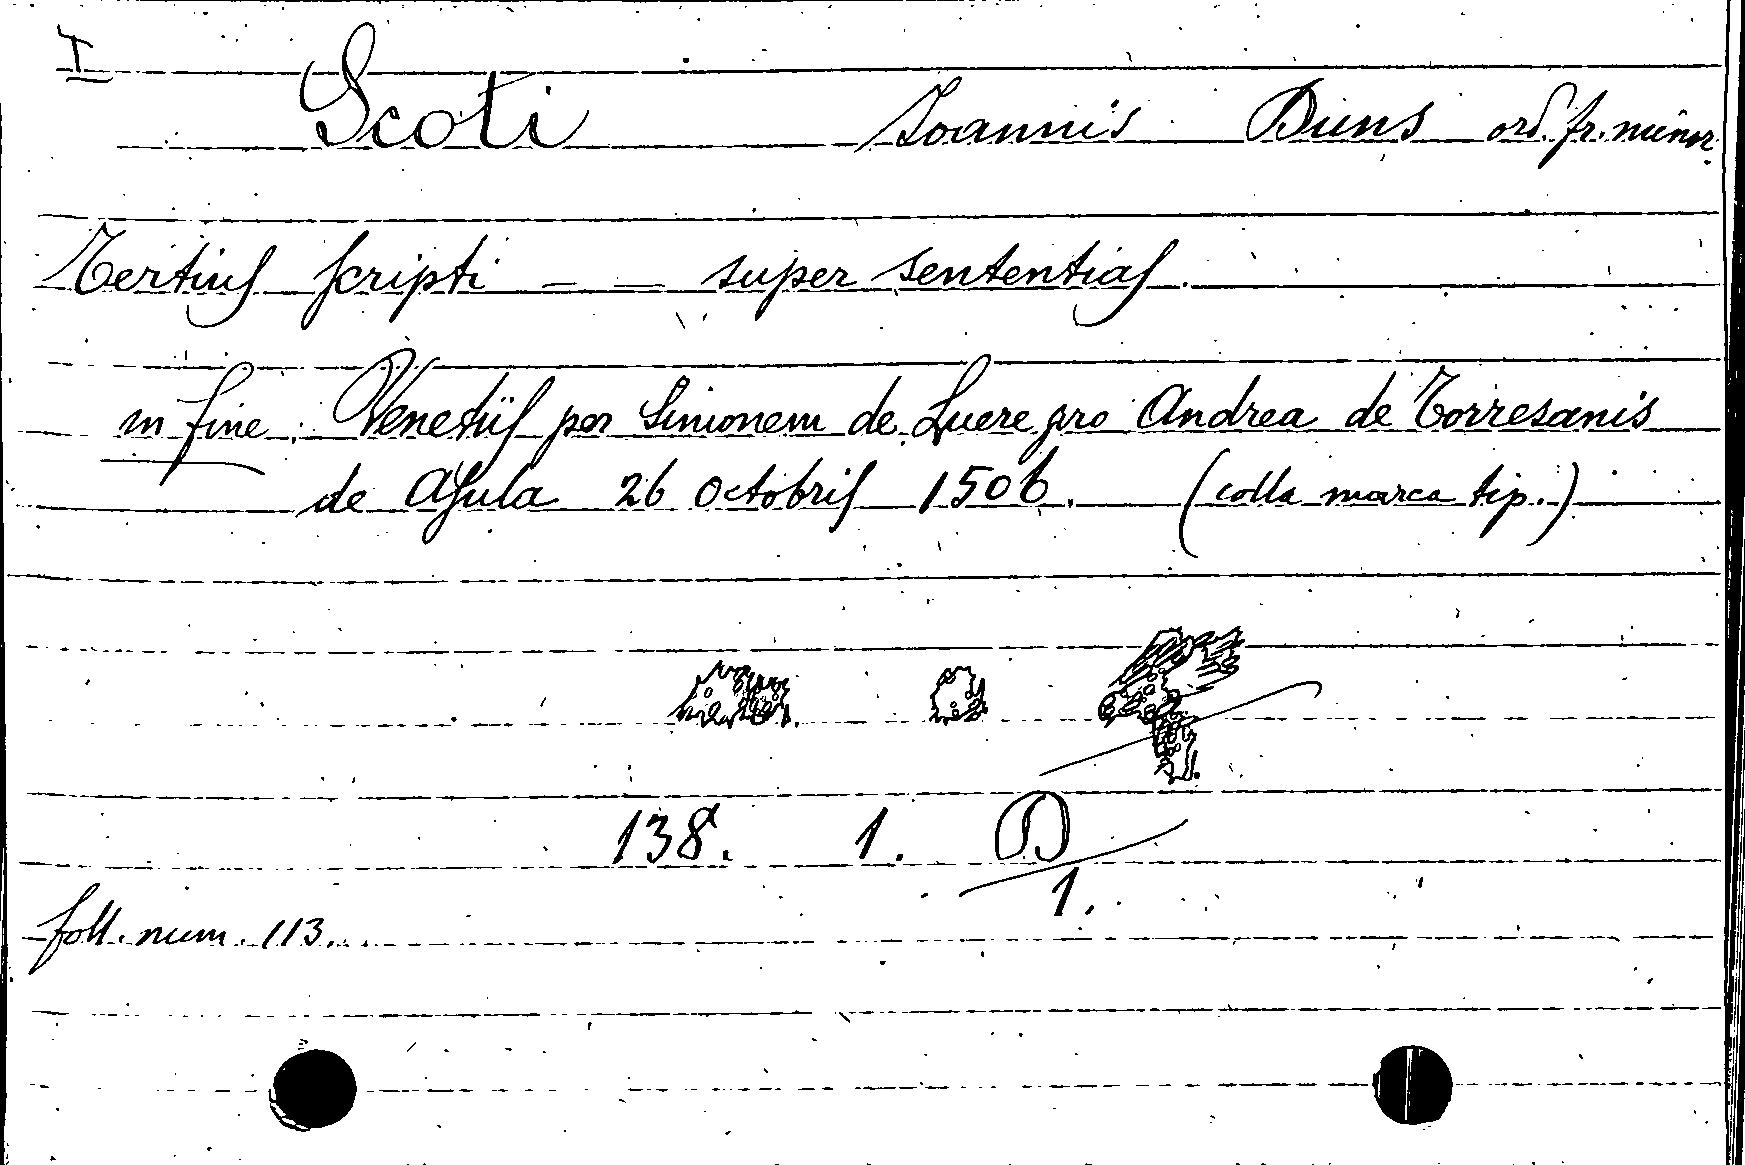 I
Scoti Ioannis Duns ord. fr. minor.
Tertius scripti _ _ super sententias.
in fine: Venetiis per Simonem de Luere pro Andrea de Torresanis
de Asula 26 Octobris 1506. (colla marca tip.)
138. 1. D
1.
foll. num. 113.